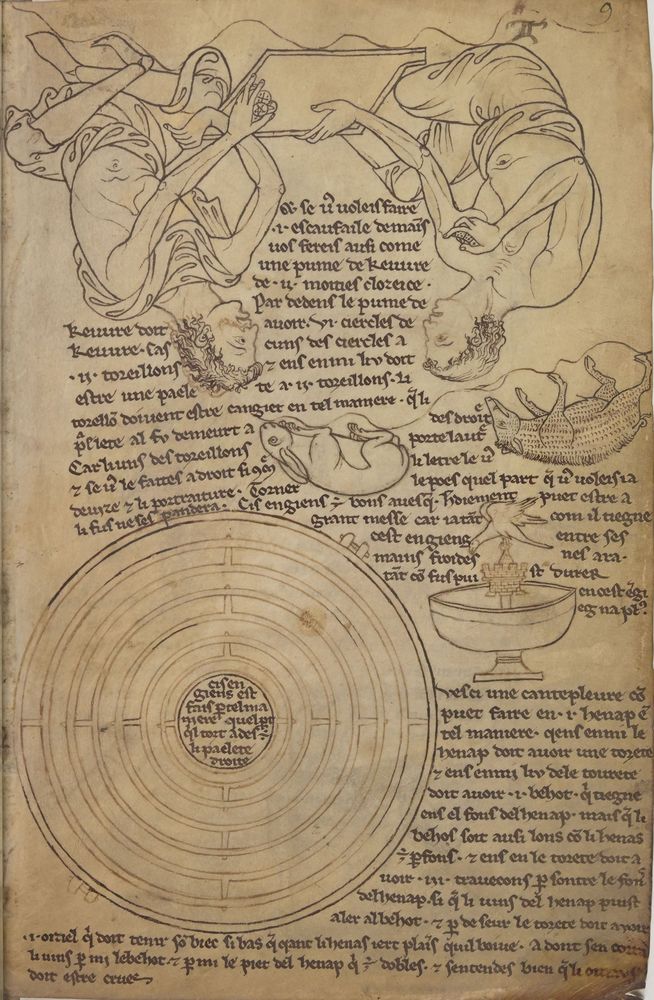 9
& se vꝰ voleis faire
·i· escaufaile de mains
vos fereis ausi come
une pume de keuvre
de ·ii· moities clozeice ·
Par dedens le pume de
keuvre doit avoir ·vi· ciercles de
keuvre · cas cuns des ciercles a
·ii· toreillons ⁊ ens enmi liv doit
estre une paele te a ·ii· toreillons · li
torellō doivent estre cangiet en tel maniere · q̃ li
paelete al fv demeurt a des droite
Car li uns des toreillons porte lautre
⁊ se vꝰ le faites a droit si li letre le vꝰ
devize ⁊ li portraiture · Torner le poes quel part q̃ vꝰ voleis ia
li fus ne ses pandera · Cis engiens ÷ bons a vesq̃ · hdiement puet estre a
grant messe car ia tāt com il tiegne
cest engieng entre ses
mains froides nes ara ·
tāt cō fus puist durer
en cest ēgieg na pl9
cis en
giens est
fais p tel ma
niere quel pt
qil tort ades ÷
li paelete
droite
Vesci une cantepleure cō
puet faire en ·i· henap ē
tel maniere · qens enmi le
henap doit avoir une torete
⁊ ens enmi liv de le tourete
doit avoir ·i· behot · q̃ tiegne
ens el fons del henap · mais q̃ li
behos soit ausi lons cō li henas
÷ pfons · ⁊ ens en le torete doit a
voir ·iii· travecons p sontre le fons
del henap · si q̃ li vins del henap puist
aler al behot · ⁊ p de seur le torete doit avoir
·i· oisiel q̃ doit tenir sō biec si bas q̃ qant li henas iert plais quil boive · A dont sen corra
li vins p mi le behot · ⁊ p mi le piet del henap q̃ ÷ dobles · ⁊ sentendes bien q̃ li oiziaus
doit estre crues